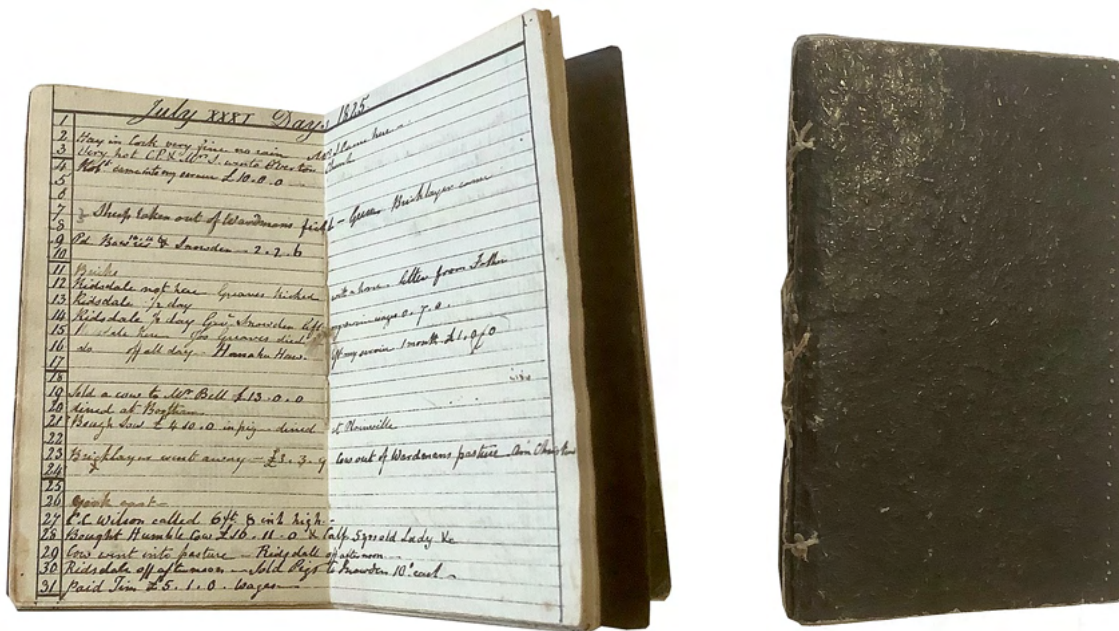 July XXXI Days 1825
1
2 Hay in Cock very fine no rain Mr S came here
3 Very hot C.P. & Mr S. went to Overton Church
4 Robt came into my service £10.0.0
5
6
7 3 Sheep taken out of Wardmans field - Greaves Bricklayer came
8
9 Pd & Snowden - 2.2.6
10
11 Bricks
12 Ridsdale not here Greaves kicked with a horse letter from Father
13 Ridsdale 1/2 day
14 Ridsdale 1/2 day Geo. Snowden left my service wages 0.7.0.
15 here Joo Greaves died
16 do off all day - Hannah Haw. left my service 1 month £1.0.0
17
18
19 Sold a cow to Mr Bell £13.0.0
20 dined at Bootham
21 Bough Sow £4 10.0 in pig - dined at Plainville
22
23 Bricklayer went away - £3.3.9 Cow out of Wardmans pasture
24
25
26 York
27 C.C. Wilson called 6ft 8 inh high -
28 Bought Humble Cow £10.11.0 & Calf 5 Lady &c
29 Cow went into pasture - Ridsdall off afternoon
30 Ridsdale off afternoon - Sold Pigs to Snowden 10s each
31 Paid Tim £5.1.0. Wages